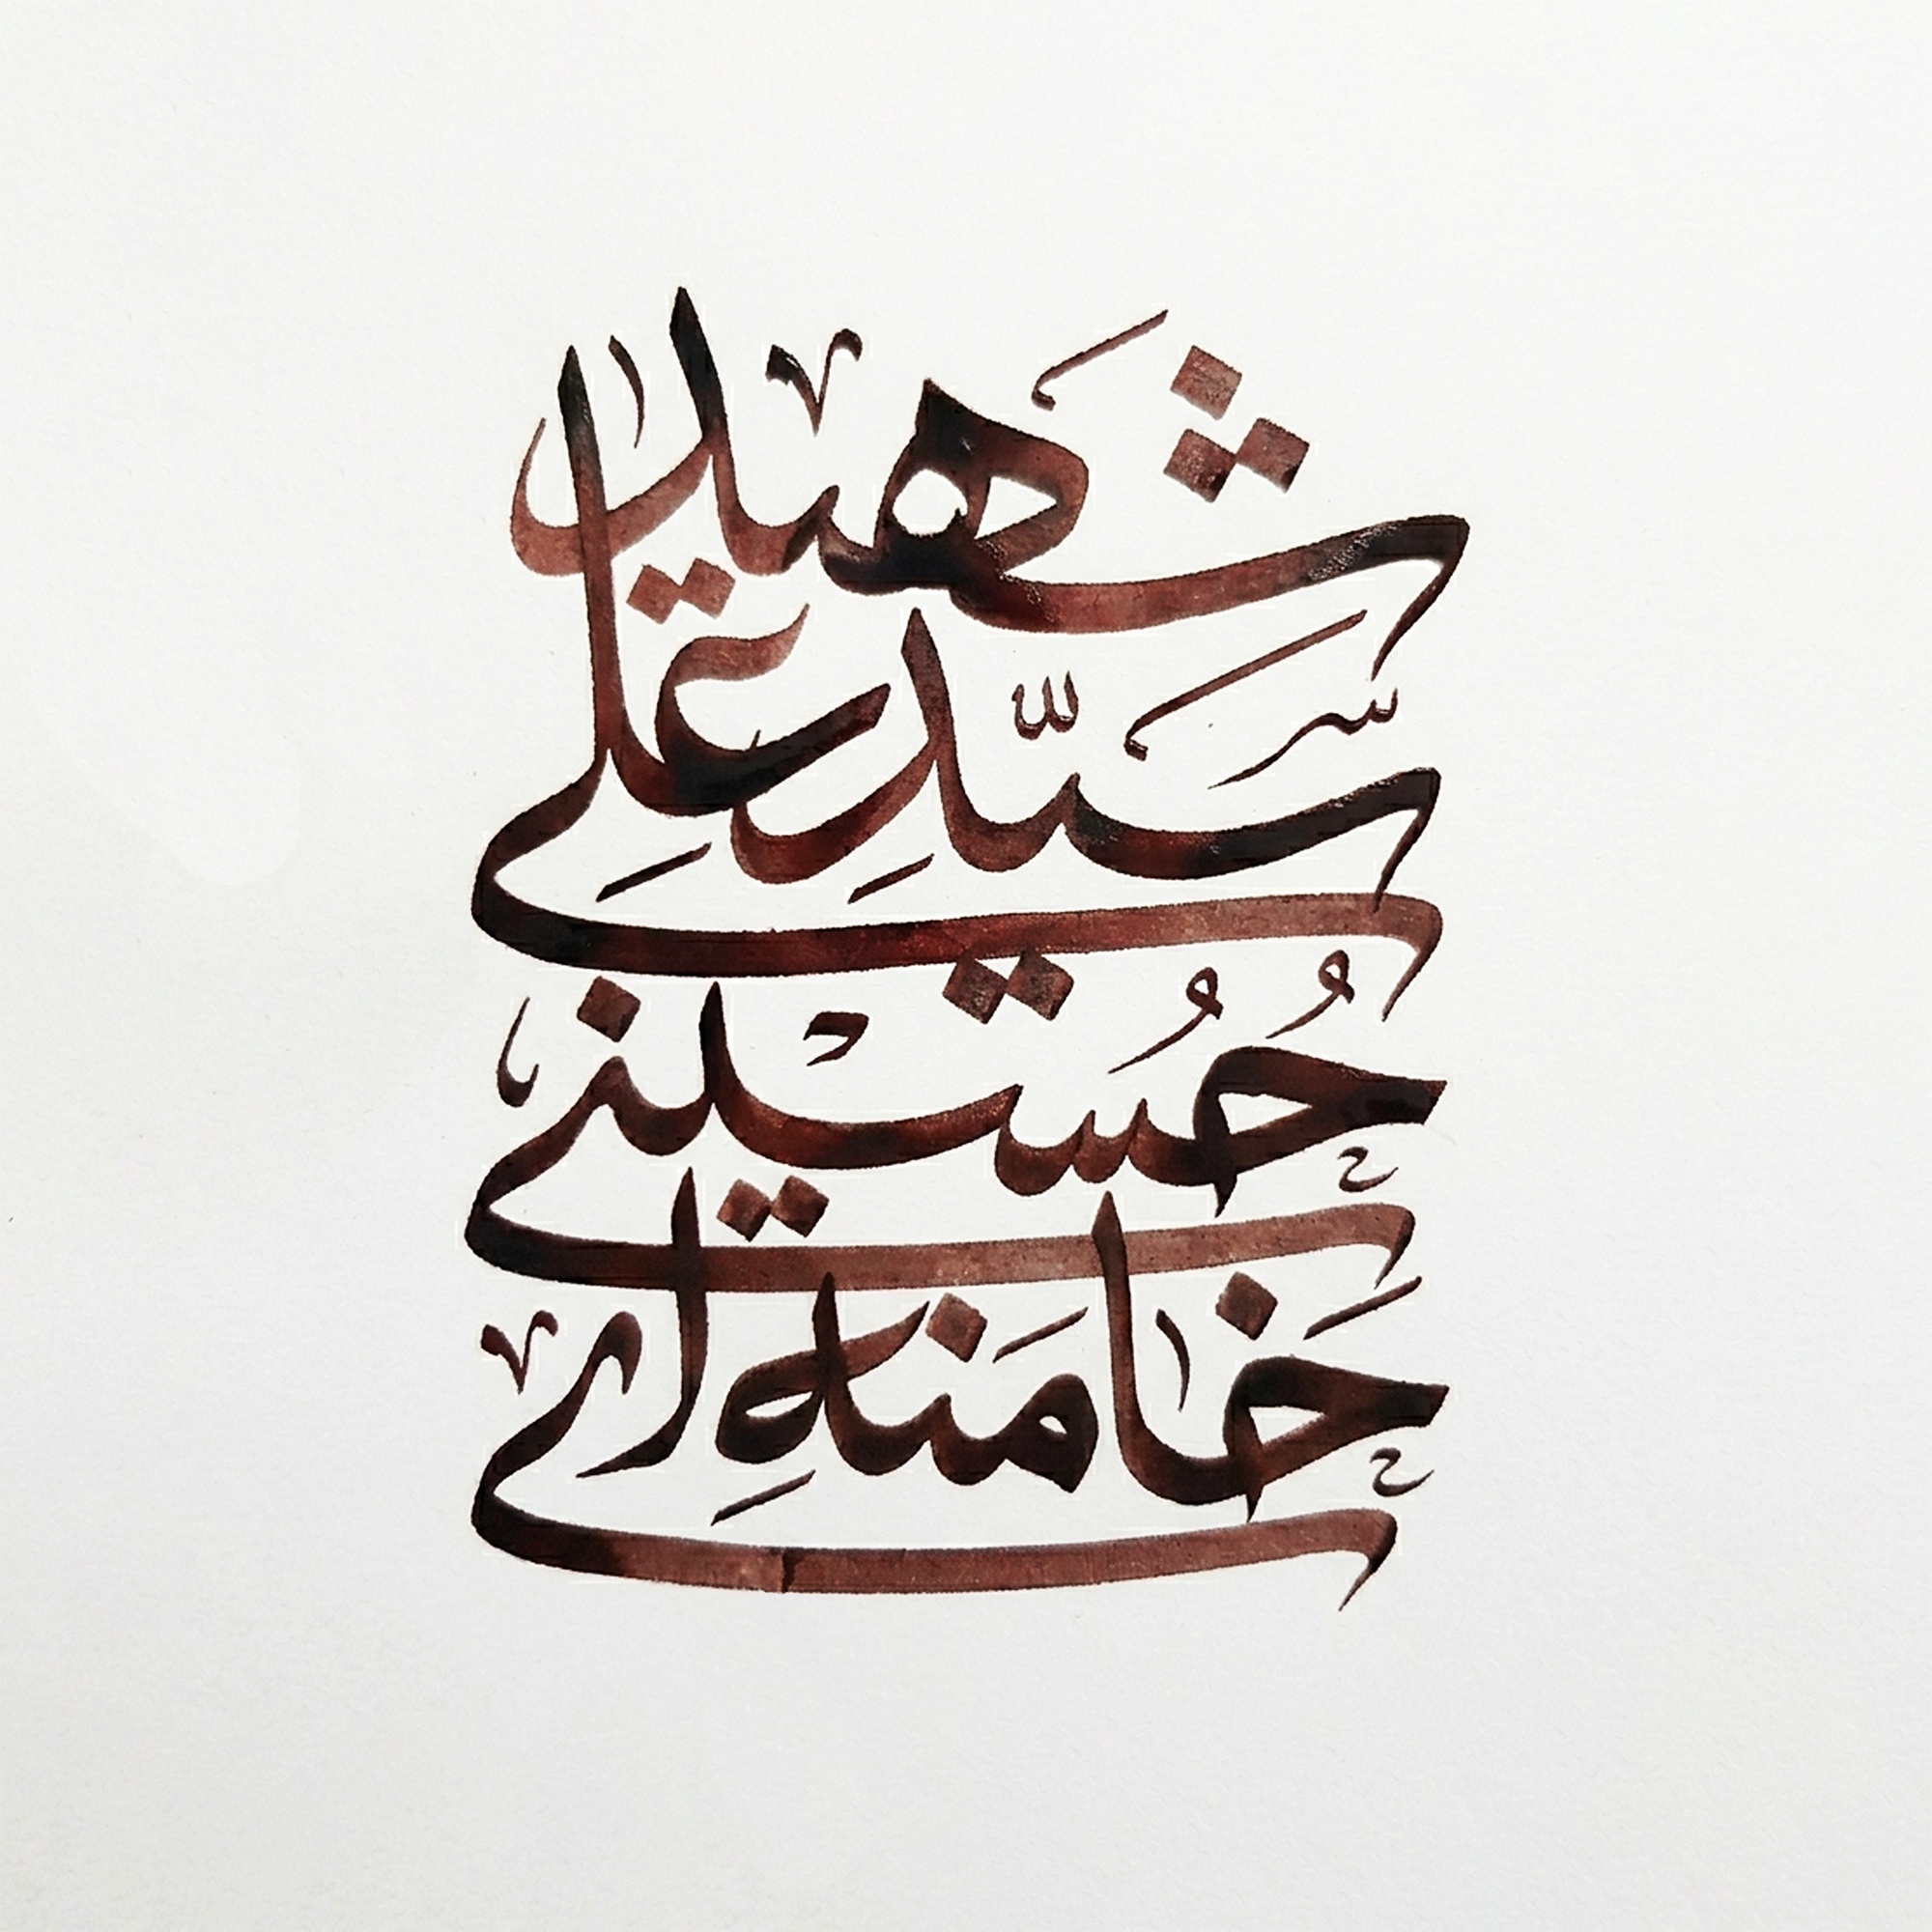 شهید
سَیّدعلی
حُسینی
خامنه‌ای